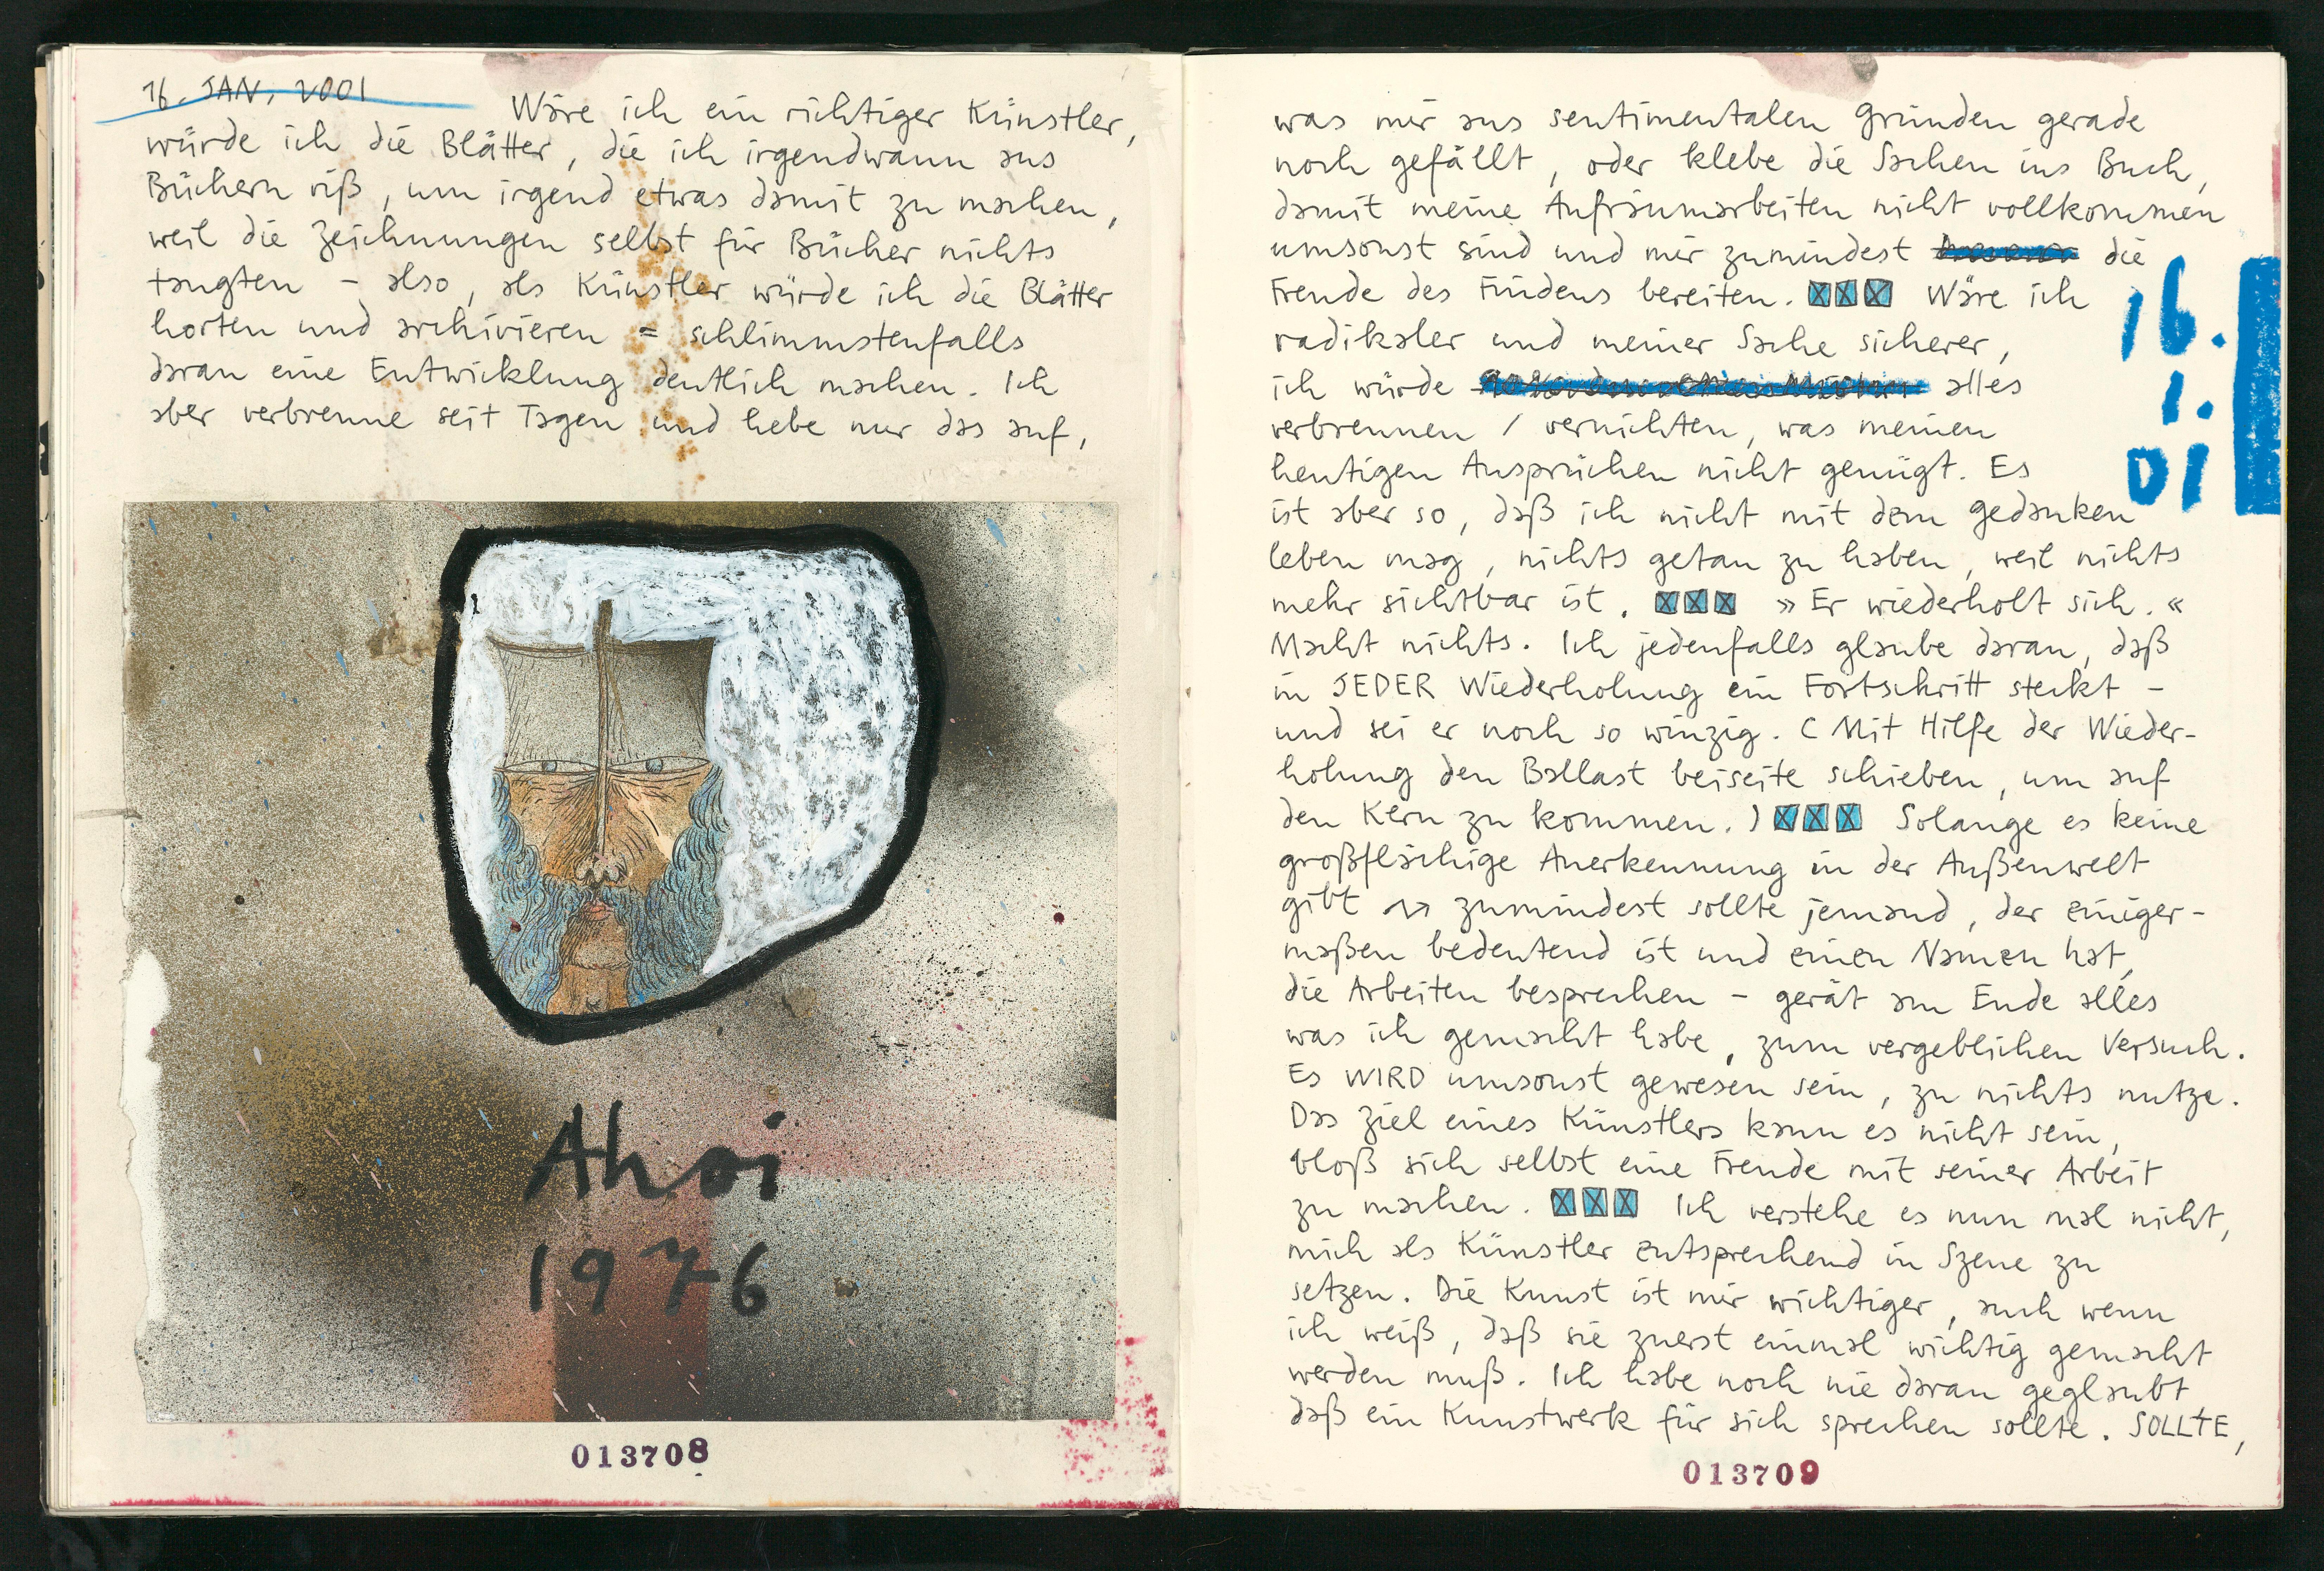 16. JAN. 2001
Wäre ich ein richtiger Künstler,
würde ich die Blätter, die ich irgendwann aus
Büchern riß, um irgend etwas damit zu machen,
weil die Zeichnungen selbst für Bücher nichts
taugten – also, als Künstler würde ich die Blätter
horten und archivieren = schlimmstenfalls
daran eine Entwicklung deutlich machen. Ich
aber verbrenne seit Tagen und hebe nur das auf,
Ahoi
1976
013708
was mir aus sentimentalen Gründen gerade
noch gefällt, oder klebe die Sachen ins Buch,
damit meine Aufräumarbeiten nicht vollkommen
umsonst sind und mir zumindest die
Freude des Findens bereiten. Wäre ich
radikaler und meiner Sache sicherer,
ich würde alles
verbrennen / vernichten, was meinen
heutigen Ansprüchen nicht genügt. Es
ist aber so, daß ich nicht mit dem Gedanken
leben mag, nichts getan zu haben, weil nichts
mehr sichtbar ist. »Er wiederholt sich.«
Macht nichts. Ich jedenfalls glaube daran, daß
in JEDER Wiederholung ein Fortschritt steckt –
und sei er noch so winzig. (Mit Hilfe der Wieder-
holung den Ballast beiseite schieben, um auf
den Kern zu kommen.) Solange es keine
großflächige Anerkennung in der Außenwelt
gibt zumindest sollte jemand, der einiger-
maßen bedeutend ist und einen Namen hat,
die Arbeiten besprechen – gerät am Ende alles
was ich gemacht habe, zum vergeblichen Versuch.
Es WIRD umsonst gewesen sein, zu nichts nutze.
Das Ziel eines Künstlers kann es nicht sein,
bloß sich selbst eine Freude mit seiner Arbeit
zu machen. Ich verstehe es nun mal nicht,
mich als Künstler entsprechend in Szene zu
setzen. Die Kunst ist mir wichtiger, auch wenn
ich weiß, daß sie zuerst einmal wichtig gemacht
werden muß. Ich habe noch nie daran geglaubt
daß ein Kunstwerk für sich sprechen sollte. SOLLTE,
16.
1.
01
013709